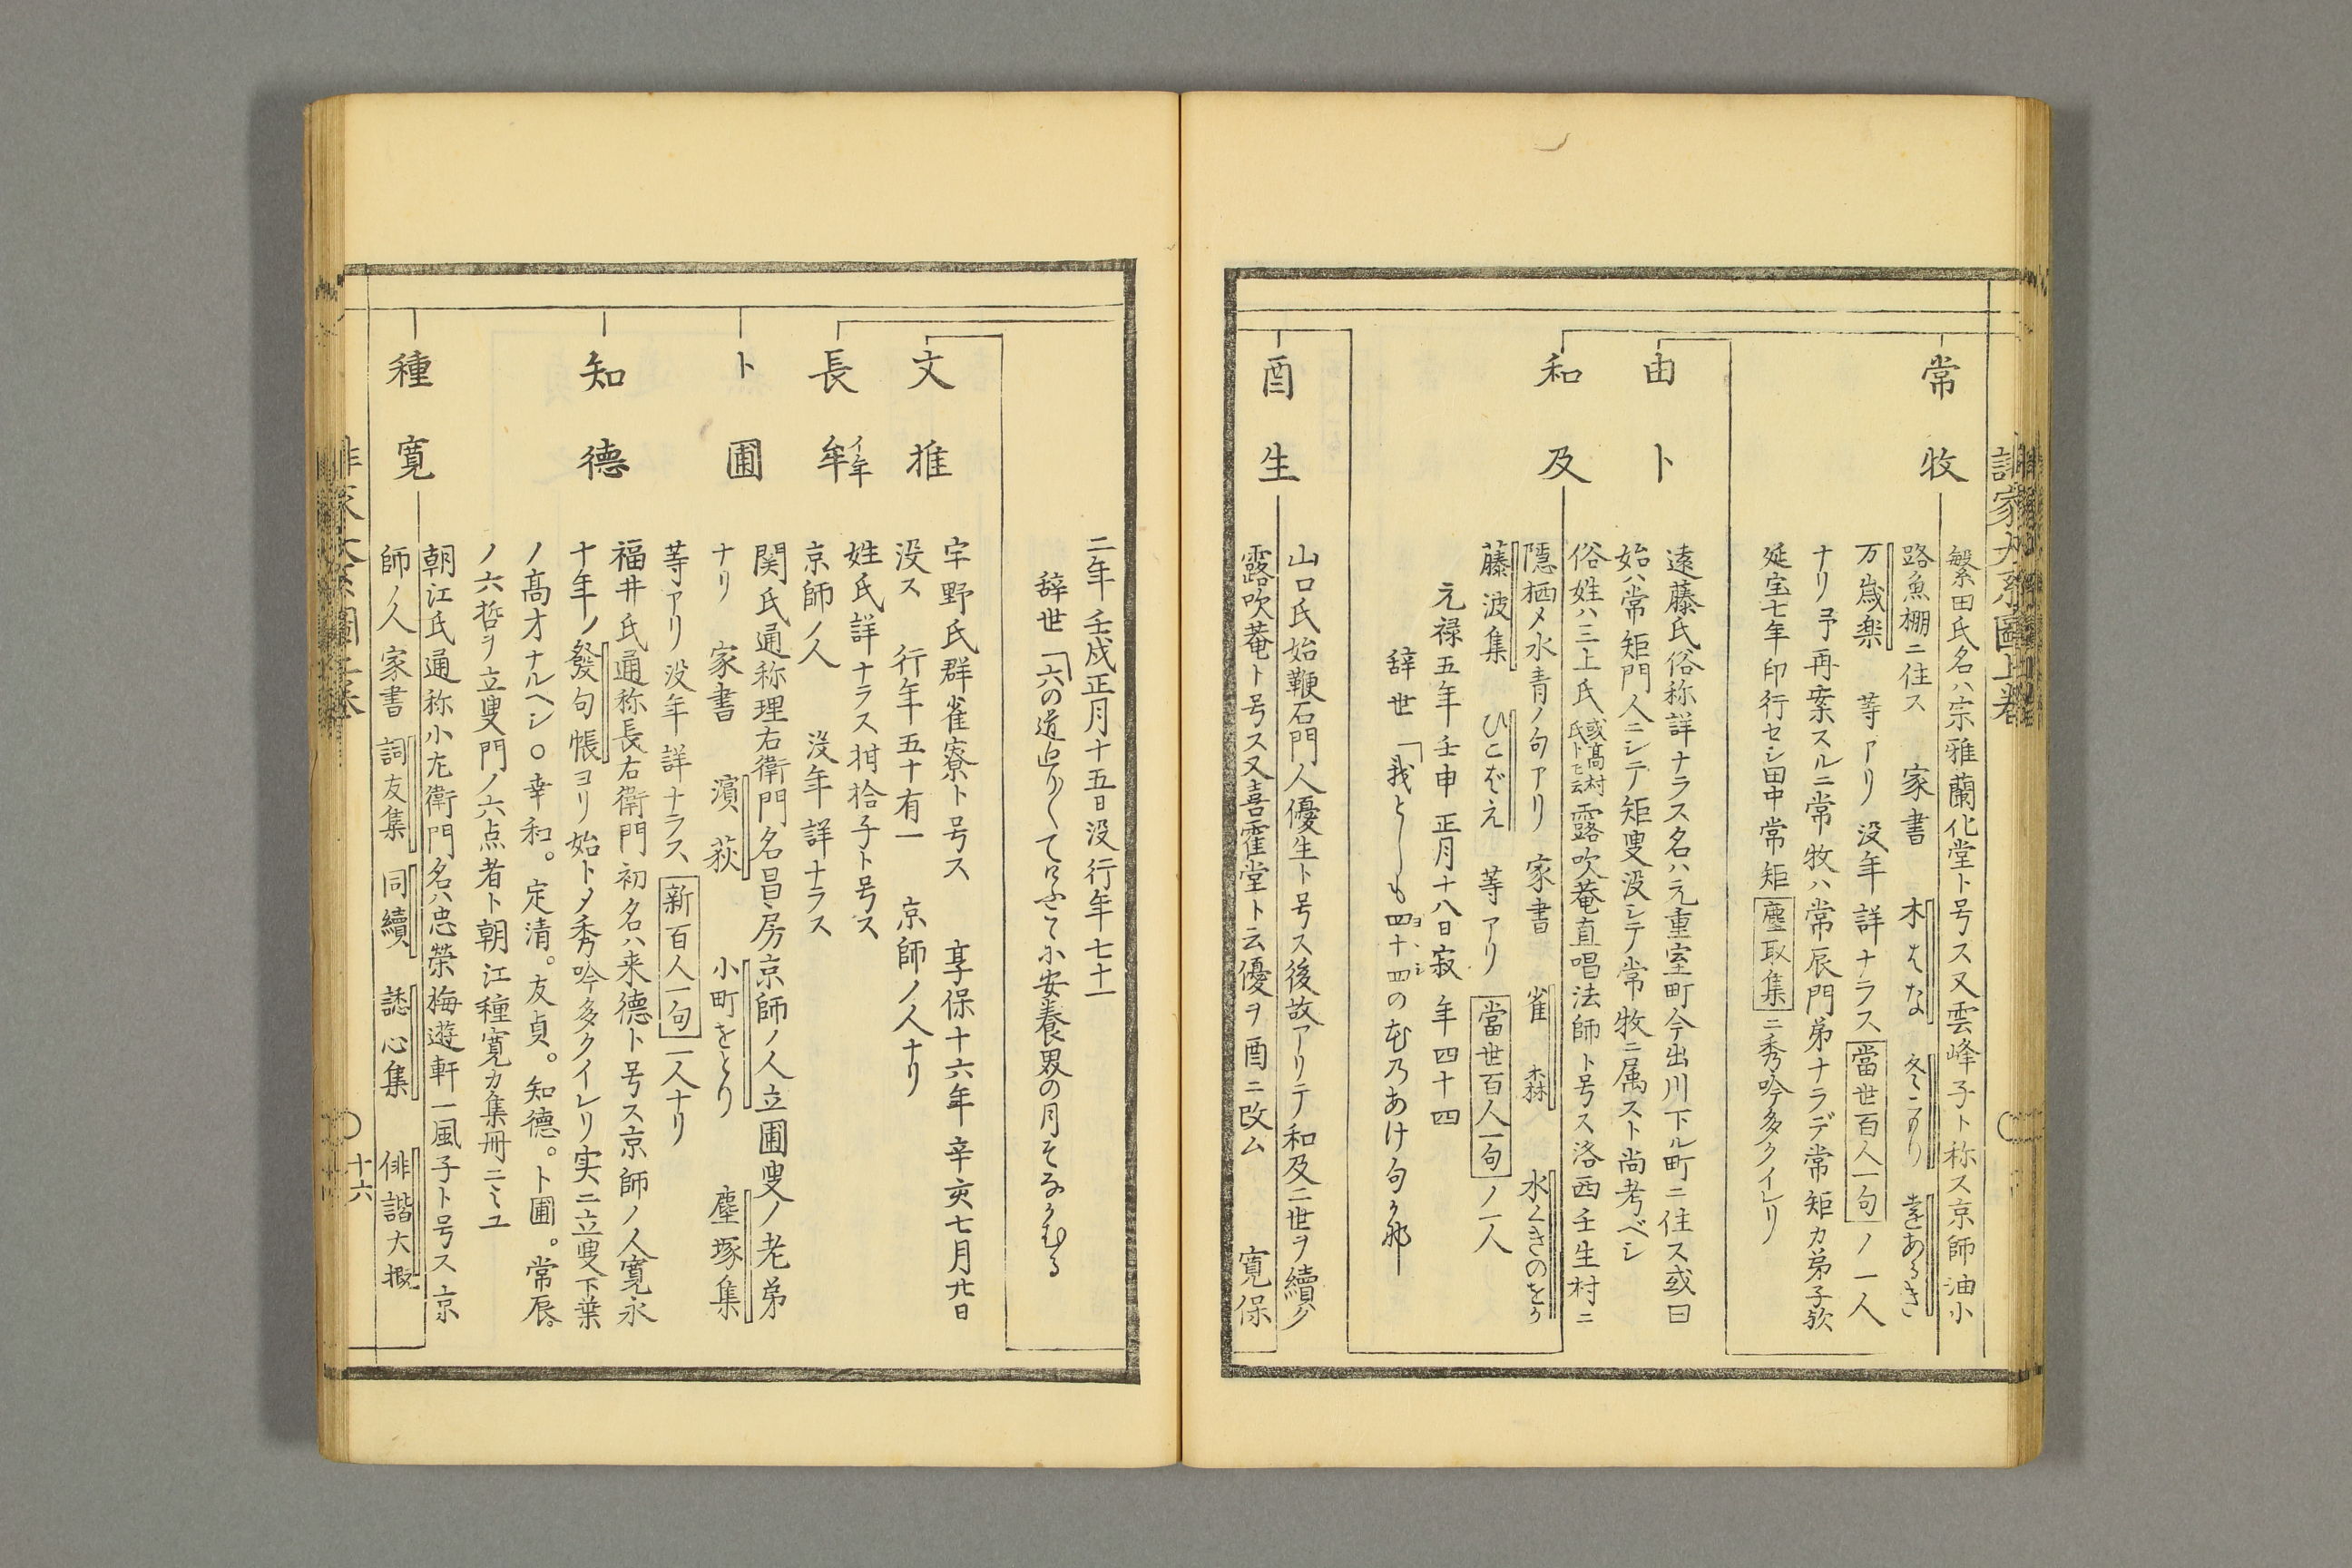 常牧
繁田氏名ハ宗雅蘭化堂ト号ス又雲峰子ト称ス京師油小
路魚棚ニ住ス 家書 木はな 冬こもり 遠あるき
万歳楽 等アリ没年詳ナラス當世百人一句ノ一人
ナリ予再案スルニ常牧ハ常辰門弟ナラデ常矩カ弟子欤
延宝七年印行セシ田中常矩塵取集ニ秀吟多クイレリ
由卜
遠藤氏俗称詳ナラス名ハ元重室町今出川下ル町ニ住ス或曰
始ハ常矩門人ニシテ矩叟没シテ常牧ニ属スト尚考ベシ
和及
俗姓ハ三上氏或髙村氏トモ云露吹菴直唱法師ト号ス洛西壬生村ニ
隠栖メ水青ノ句アリ 家書 雀森 水くきのをか
藤波集 ひこばえ 等アリ 當世百人一句ノ一人
元禄五年壬申正月十八日寂年四十四
辞世「我としも四十四の
酉生
山口氏始鞭石門人優生ト号ス後故アリテ和及二世ヲ續ク
露吹菴ト号ス又喜隺堂ト云優ヲ酉ニ改ム 寛保
二年壬戌正月十五日没行年七十一
辞世「六の道
文推
宇野氏群雀寮ト号ス 享保十六年辛亥七月廿日
没ス 行年五十有一 京師ノ人ナリ
長牟イ年
姓氏詳ナラス柑拾子ト号ス
京師ノ人 没年詳ナラス
卜圃
関氏通称理右衛門名昌房京師ノ人立圃叟ノ老弟
ナリ 家書 濱荻 小町をとり 塵塚集
等アリ没年詳ナラス新百人一句一人ナリ
知德
福井氏通称長右衛門初名ハ来德ト号ス京師ノ人寛永
十年ノ發句帳ヨリ始トメ秀吟多クイレリ実ニ立叟下葉
ノ髙才ナルヘシ○幸和。定清。友貞。知德。卜圃。常辰。
ノ六哲ヲ立叟門ノ六点者ト朝江種寛カ集冊ニミユ
種寛
朝江氏通称小左衛門名ハ忠榮梅遊軒一風子ト号ス京
師ノ人家書 詞友集 同續 誹心集 俳諧大概
十六